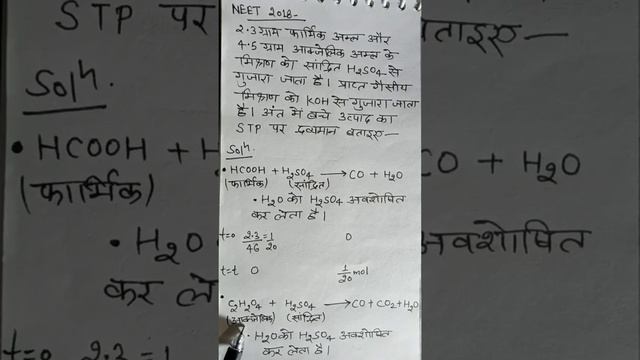 NEET 2018-
2.3 ग्राम फार्मिक अम्ल और
4.5 ग्राम आक्जेलिक अम्ल के
मिश्रण को सांद्रित H₂SO₄ से
गुजारा जाता है। प्राप्त गैसीय
मिश्रण को KOH से गुजारा जाता
है। अंत में बचे उत्पाद का
STP पर द्रव्यमान बताइए—
Solⁿ.
• HCOOH + H₂SO₄ → CO + H₂O
(फार्मिक) (सांद्रित)
• H₂O को H₂SO₄ अवशोषित
कर लेता है।
t=0 2.3/46 = 1/20 0
t=t 0 1/20 mol
• C₂H₂O₄ + H₂SO₄ → CO + CO₂ + H₂O
(सांद्रित)
• H₂O को H₂SO₄ अवशोषित
कर लेता है।